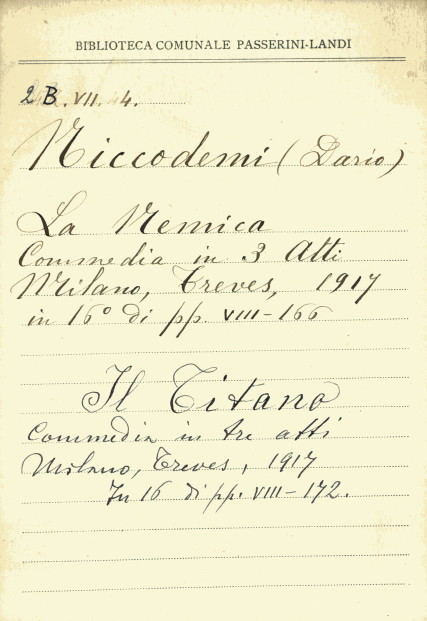 BIBLIOTECA COMUNALE PASSERINI-LANDI
2 B. VII. 44.
Niccodemi (Dario)
La Nemica
Commedia in 3 Atti
Milano, Treves, 1917
in 16° di pp. VIII-166
Il Titano
Commedia in tre atti
Milano, Treves, 1917
In 16 di pp. VIII-172.